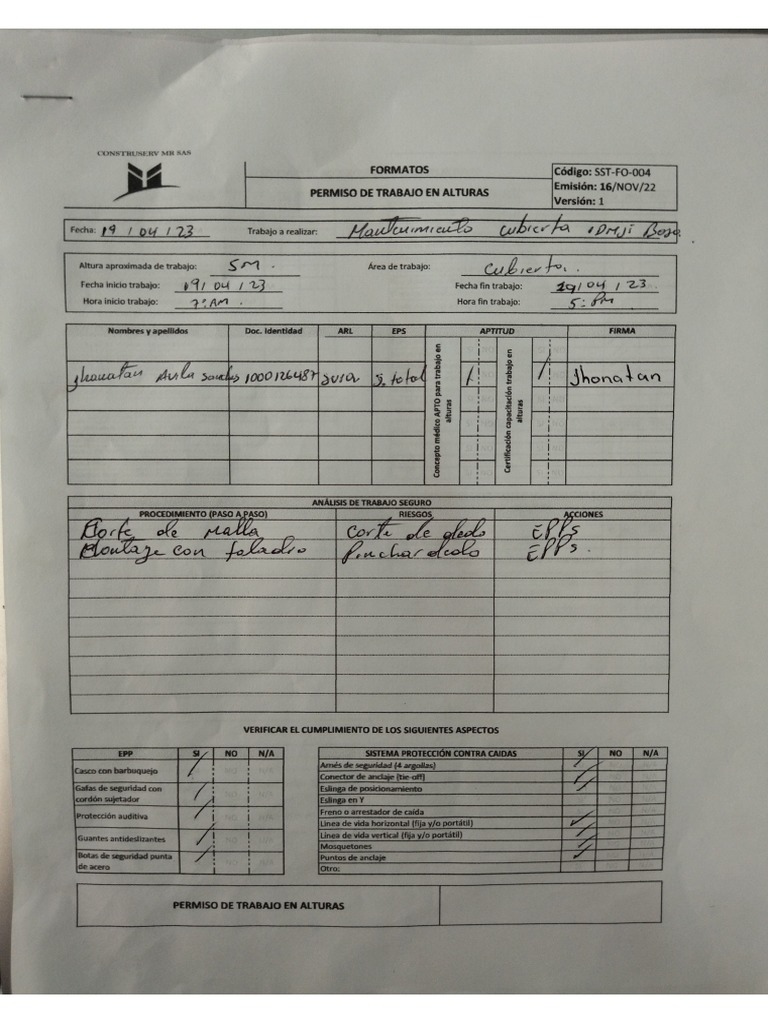 CONSTRUSERV MR SAS
FORMATOS
PERMISO DE TRABAJO EN ALTURAS
Código: SST-FO-004
Emisión: 16/NOV/22
Versión: 1
Fecha: 19 / 04 / 23 Trabajo a realizar: Mantenimiento cubierta
Altura aproximada de trabajo: 5M. Área de trabajo: cubierta.
Fecha inicio trabajo: 19/ 04 / 23 Fecha fin trabajo: 19/04 / 23
Hora inicio trabajo: 7:AM. Hora fin trabajo: 5:PM
Nombres y apellidos Doc. Identidad ARL EPS APTITUD FIRMA
Concepto médico APTO para trabajo en alturas
Certificación capacitación trabajo en alturas
Jhonatan Avila 1000126487 sura s. total Jhonatan
ANÁLISIS DE TRABAJO SEGURO
PROCEDIMIENTO (PASO A PASO) RIESGOS ACCIONES
Corte de Malla corte de dedo EPPs
Montage con taladro Pinchar dedo EPPs.
VERIFICAR EL CUMPLIMIENTO DE LOS SIGUIENTES ASPECTOS
EPP SI NO N/A
Casco con barbuquejo
Gafas de seguridad con cordón sujetador
Protección auditiva
Guantes antideslizantes
Botas de seguridad punta de acero
SISTEMA PROTECCIÓN CONTRA CAIDAS SI NO N/A
Arnés de seguridad (4 argollas)
Conector de anclaje (tie-off)
Eslinga de posicionamiento
Eslinga en Y
Freno o arrestador de caída
Linea de vida horizontal (fija y/o portátil)
Linea de vida vertical (fija y/o portátil)
Mosquetones
Puntos de anclaje
Otro:
PERMISO DE TRABAJO EN ALTURAS